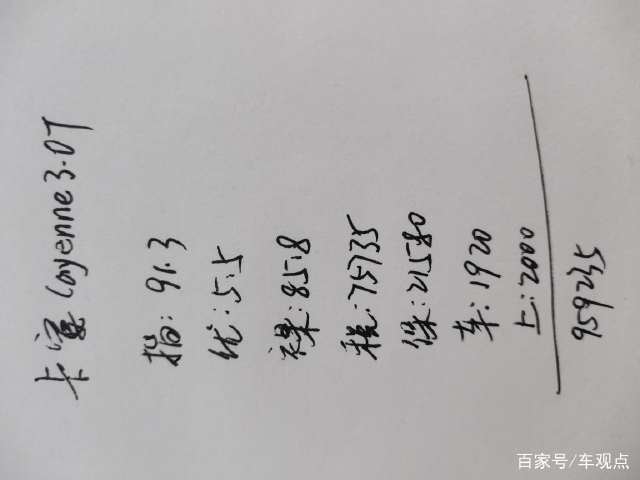 卡宴 Cayenne 3.0T
指:91.3
优:5.5
裸:85.8
税:75735
保:21580
车:1920
上:2000
959235
百家号/车观点